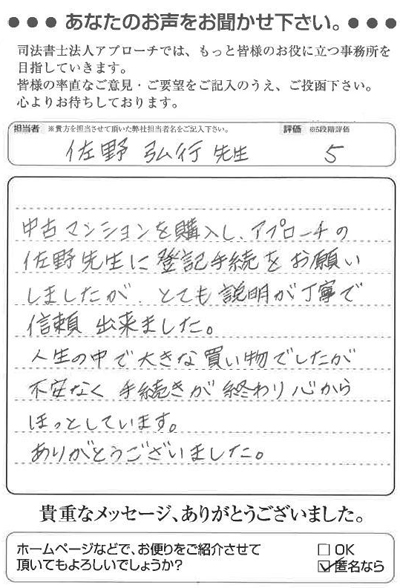 ●●● あなたのお声をお聞かせ下さい。●●●
司法書士法人アプローチでは、もっと皆様のお役に立つ事務所を
目指していきます。
皆様の率直なご意見・ご要望をご記入のうえ、ご投函下さい。
心よりお待ちしております。
担当者 ※貴方を担当させて頂いた弊社担当者名をご記入下さい。 評価 ※5段階評価
佐野 弘行 先生 5
中古マンションを購入し、アプローチの
佐野先生に登記手続をお願い
しましたが、とても説明が丁寧で
信頼出来ました。
人生の中で大きな買い物でしたが
不安なく手続きが終わり心から
ほっとしています。
ありがとうございました。
貴重なメッセージ、ありがとうございました。
ホームページなどで、お便りをご紹介させて
頂いてもよろしいでしょうか?
□ OK
☑ 匿名なら